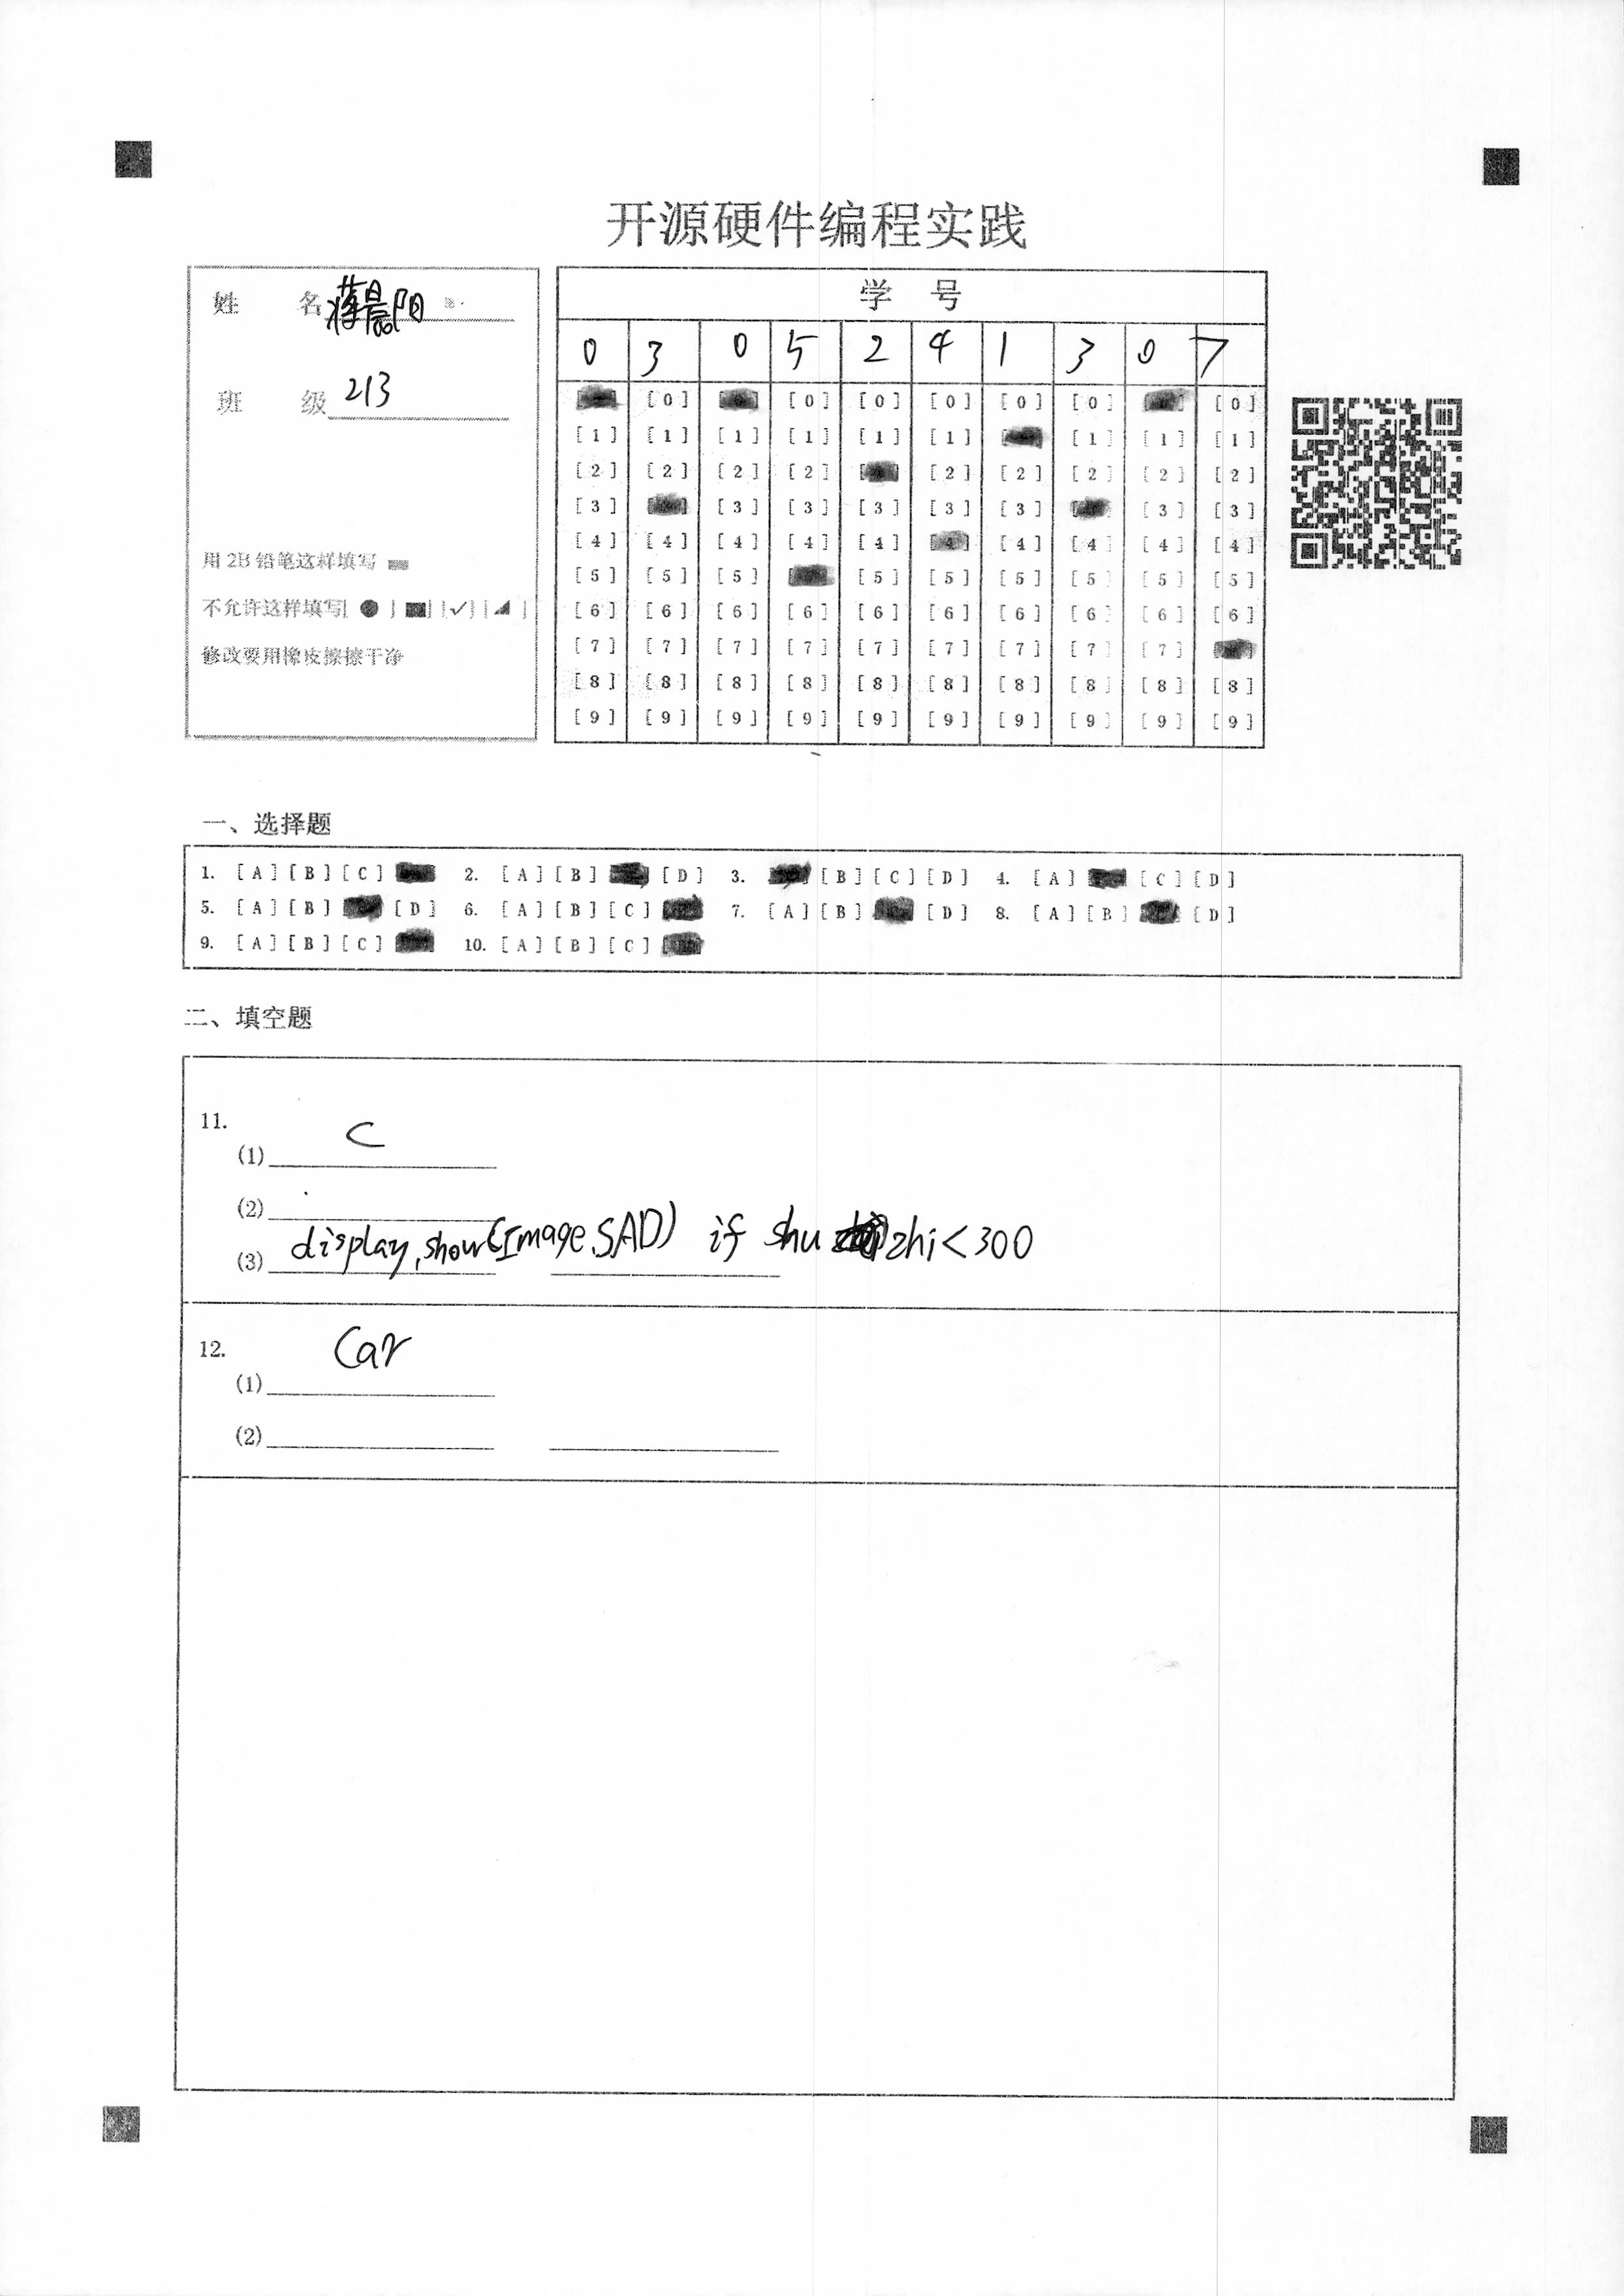 开源硬件编程实践
姓 名 蒋晨阳
班 级 213
用2B铅笔这样填写
不允许这样填写[ ● ] [■] [✓] [◢ ]
修改要用橡皮擦擦干净
学 号
0 3 0 5 2 4 1 3 0 7
[0] [0] [0] [0] [0] [0] [0]
[1] [1] [1] [1] [1] [1] [1] [1] [1]
[2] [2] [2] [2] [2] [2] [2] [2] [2]
[3] [3] [3] [3] [3] [3] [3] [3]
[4] [4] [4] [4] [4] [4] [4] [4] [4] [4]
[5] [5] [5] [5] [5] [5] [5] [5] [5]
[6] [6] [6] [6] [6] [6] [6] [6] [6] [6]
[7] [7] [7] [7] [7] [7] [7] [7] [7]
[8] [8] [8] [8] [8] [8] [8] [8] [8] [8]
[9] [9] [9] [9] [9] [9] [9] [9] [9] [9]
一、选择题
1. [A] [B] [C] 2. [A] [B] [D] 3. [B] [C] [D] 4. [A] [C] [D]
5. [A] [B] [D] 6. [A] [B] [C] 7. [A] [B] [D] 8. [A] [B] [D]
9. [A] [B] [C] 10. [A] [B] [C]
二、填空题
11.
(1) C
(2)
(3) display.show(Image.SAD) if shu zhi<300
12.
(1) Car
(2)